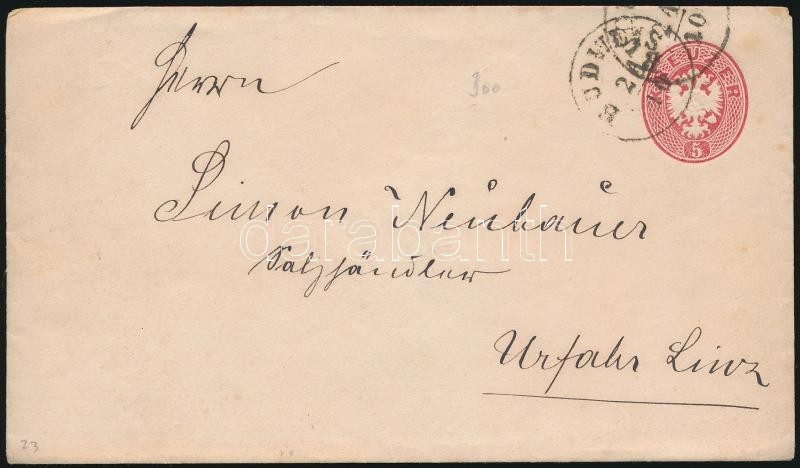 Herrn
300
KREUZER
5
BUDWEIS
Simon Neubauer
darabanth
Salzhändler
Urfahr Linz
23